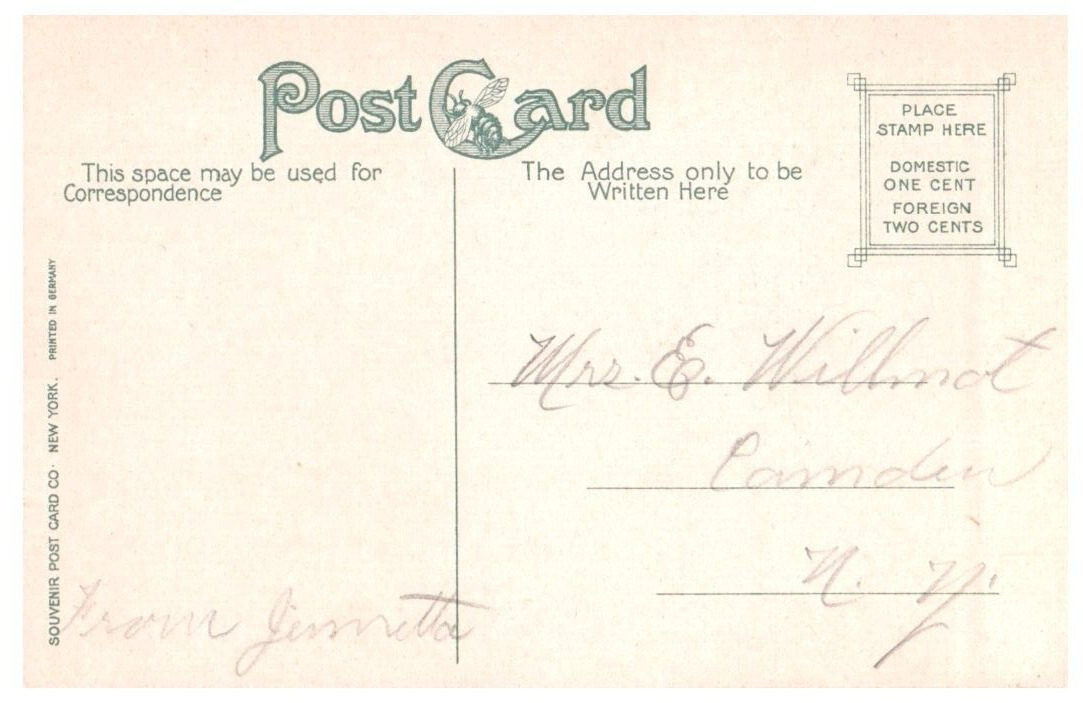 Post Card
This space may be used for
Correspondence
The Address only to be
Written Here
PLACE
STAMP HERE
DOMESTIC
ONE CENT
FOREIGN
TWO CENTS
SOUVENIR POST CARD CO· NEW YORK. PRINTED IN GERMANY
Mrs. E. Willmot
Camden
N. Y.
From Jennetta